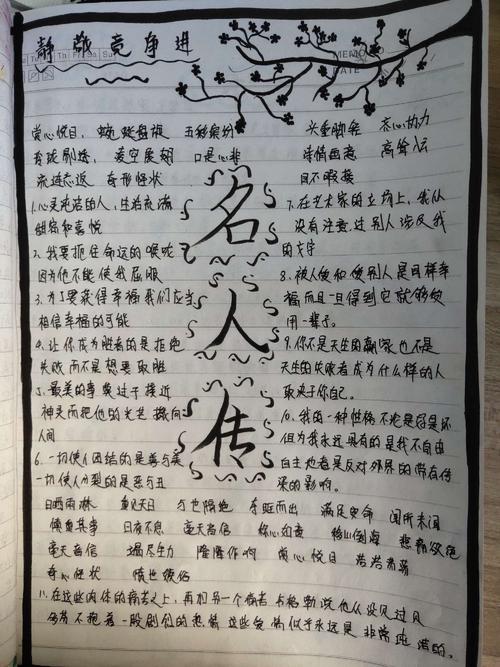 静敬竞争进
MEMO
DATE
赏心悦目, 蜿蜒盘旋 五彩缤纷
玲珑剔透, 凌空展翅 口是心非
流连忘返 奇形怪状
头重脚轻 齐心协力
诗情画意 高耸入云
目不暇接
名人传
1.心灵充沛的人,生活充满
甜蜜和喜悦
2.我要扼住命运的喉咙
因为他不能使我屈服
3.为了要获得幸福我们应当
相信幸福的可能
4.让你成为胜者的是拒绝
失败而不是想要取胜
5.最美的事莫过于接近
神灵而把他的光芒撒向
人间
6.一切使人团结的是善与美
一切使人分裂的是恶与丑
7.在艺术家的立场上,我从
没有注意过别人涉及我
的文字
8.被人爱和爱别人是同样幸
福而且一旦得到它就够受
用一辈子。
9.你不是天生的赢家也不是
天生的失败者成为什么样的人
取决于你自己。
10.我的一种性格不论是好是坏
但为我永远具有的是我不自由
自主地老是反对外界的带有传
染的影响。
日晒雨淋 重见天日 与世隔绝 夺眶而出 满足虚荣 闻所未闻
倾道其事 日夜不息 毫无音信 惊心动魄 排山倒海 悲痛欲绝
毫无音信 竭尽全力 隆隆作响 赏心悦目
奇心怪状 愤世嫉俗
11.在这些肉体的痛苦之上,再加另一个痛苦
不抱着一股剧烈的热情 这些爱情似乎永远是非常纯洁的。